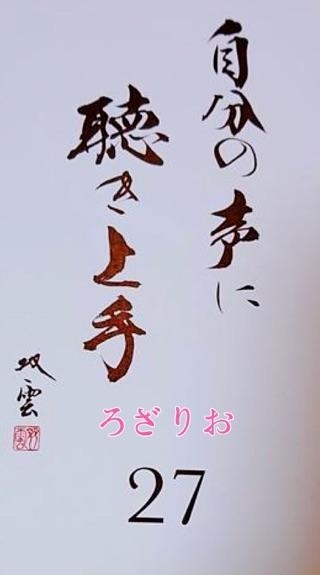 自分の声に
聴き上手
双雲
ろざりお
27